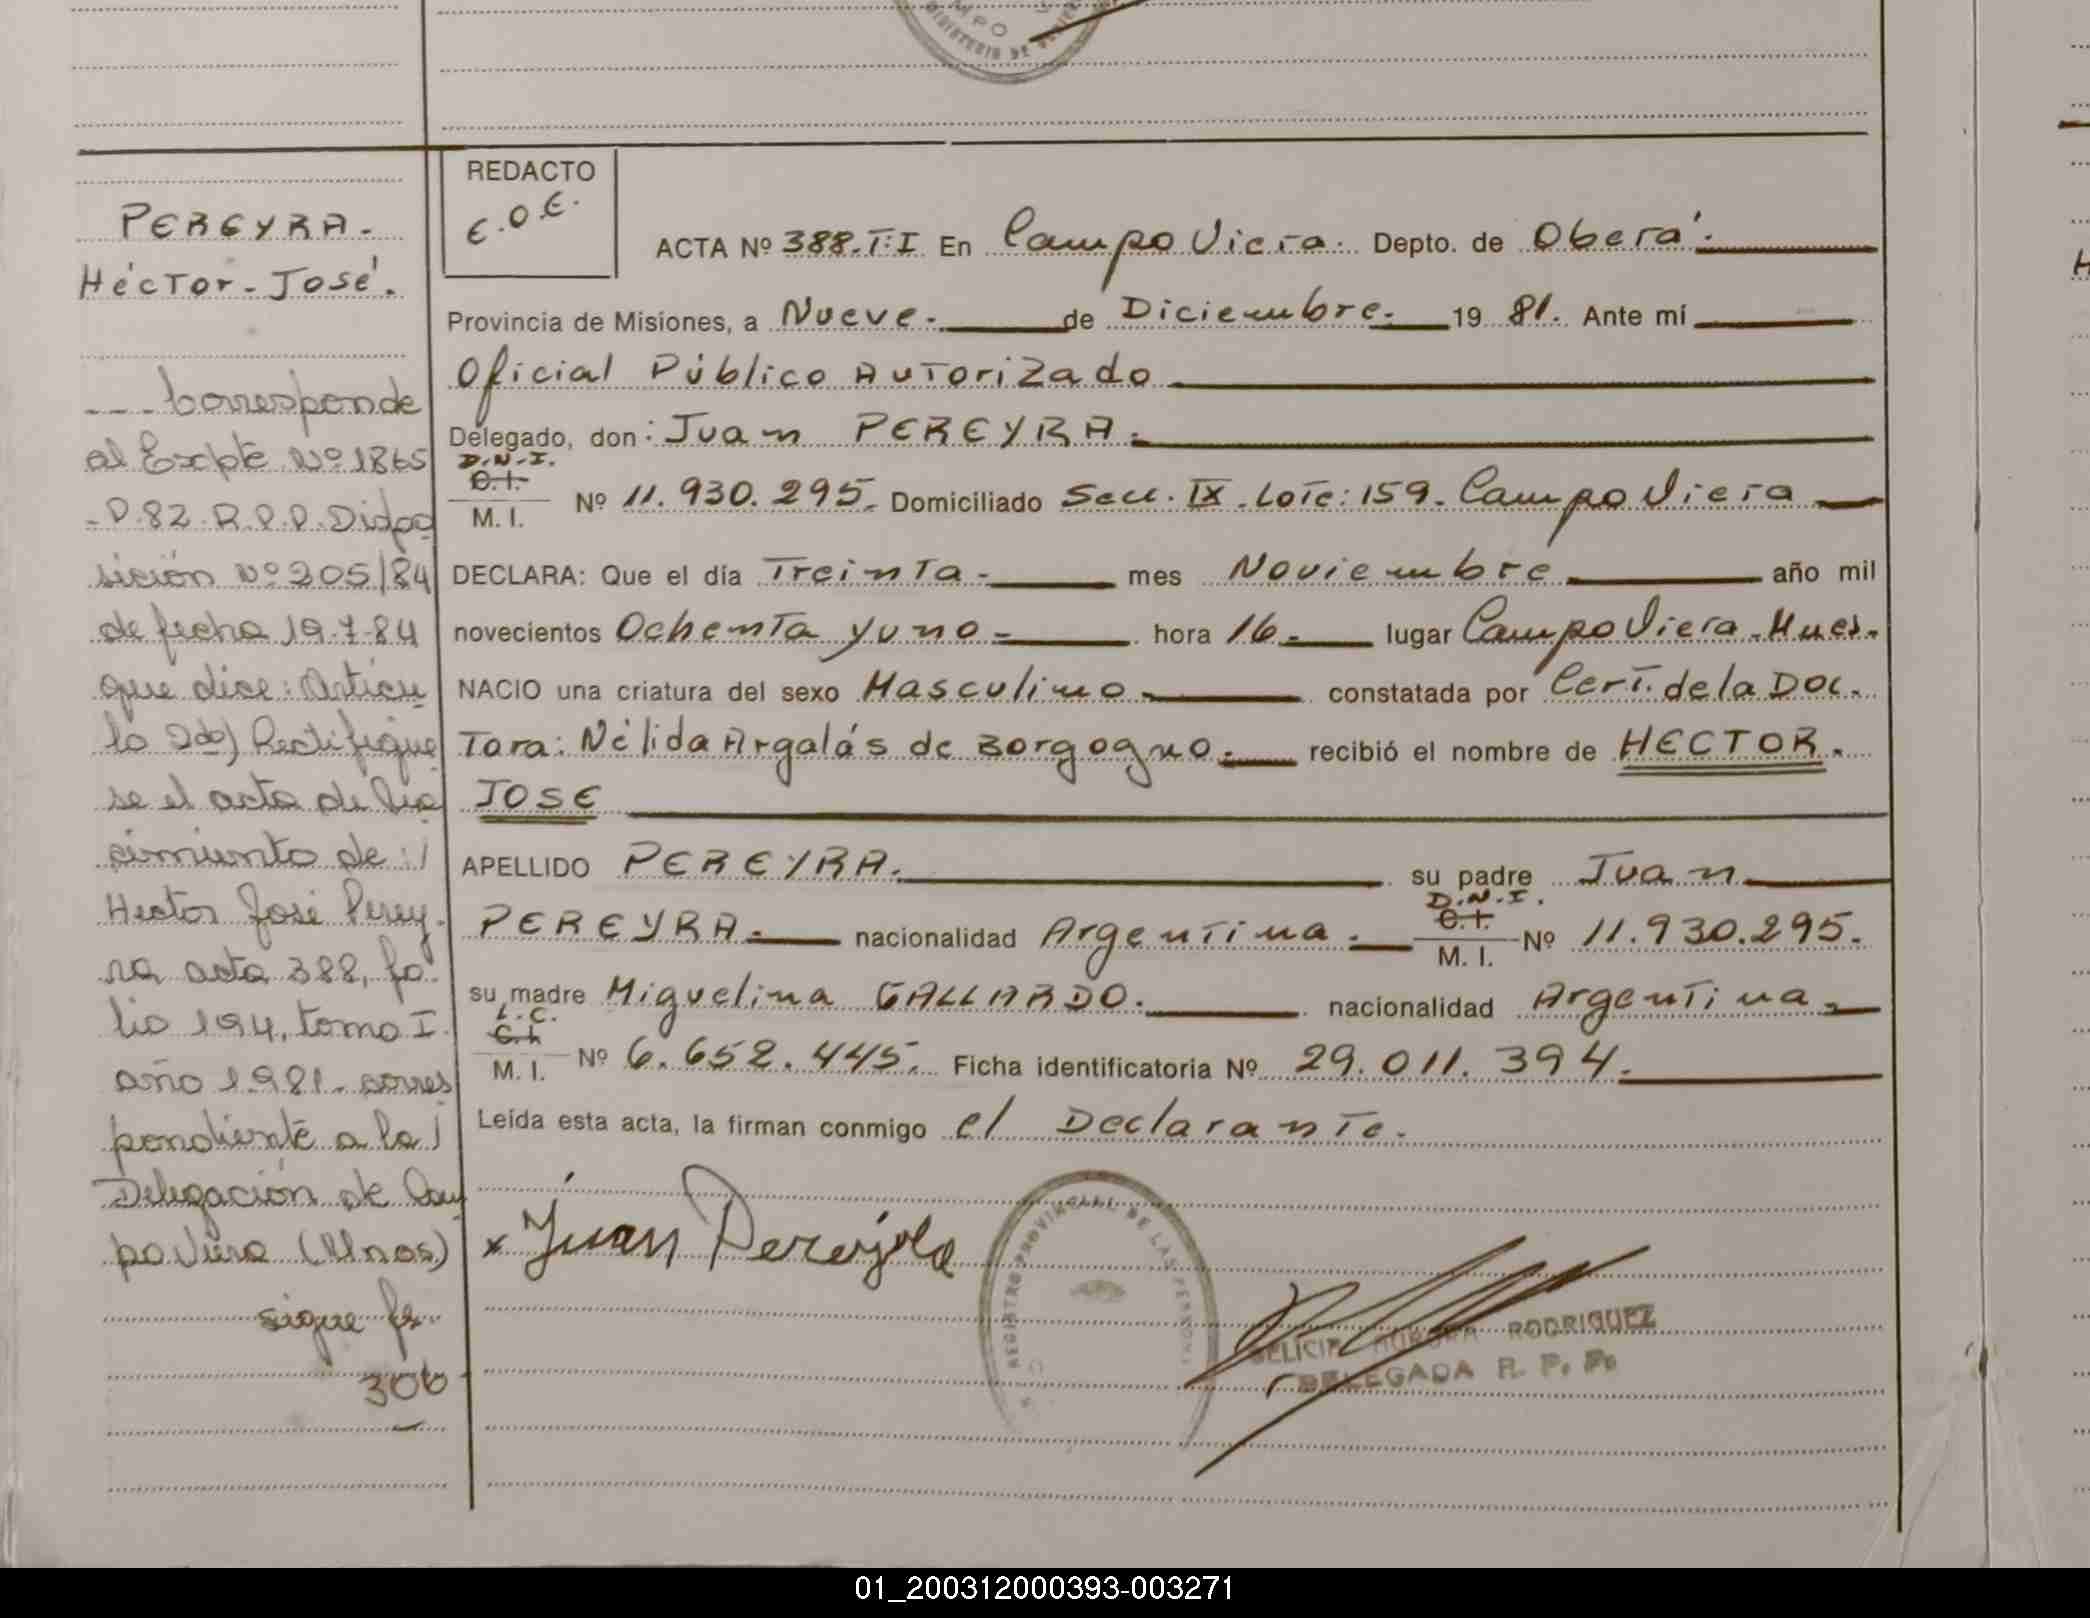 MPO
MINISTERIO DE
PEREYRA.
Héctor-José.
REDACTO
E.O.E.
ACTA Nº 388.T:I En Campo Viera. Depto. de Oberá.
Provincia de Misiones, a Nueve. de Diciembre. 19 81. Ante mí
Oficial Público Autorizado
Delegado, don: Juan PEREYRA.
D.N.I.
C.I.
M. I.
Nº 11.930.295. Domiciliado Secc. IX. Lote: 159. Campo Viera
DECLARA: Que el día Treinta. mes Noviembre año mil
novecientos Ochenta y uno. hora 16. lugar Campo Viera. Mnes.
NACIO una criatura del sexo Masculino. constatada por Cert. de la Doc.
Tora: Nélida Argalás de Borgogno. recibió el nombre de HECTOR.
JOSE
APELLIDO PEREYRA. su padre Juan
D.N.I.
PEREYRA. nacionalidad Argentina. C.I. M. I. Nº 11.930.295.
su madre Miguelina GALLARDO. nacionalidad Argentina.
L.C.
C.I.
M. I. Nº 6.652.445. Ficha identificatoria Nº 29.011.394.
Leída esta acta, la firman conmigo el Declarante.
x Juan Pereyra
REGISTRO PROVINCIAL DE LAS PERSONAS
AURORA RODRIGUEZ
DELEGADA R. P. P.
--- Corresponde
al Expte Nº 1865
-P.82.R.P.P. Dispo
sición Nº 205/84
de fecha 19-7-84
que dice: Artícu
lo 2do) Rectifíque
se el acta de Na
cimiento de:/
Hector José Perey
ra acta 388, fo
lio 194, tomo I.
año 1981. corres
pondiente a la /
Delegación de Cam
po Viera (Mnes)
sigue fs.
306
01_200312000393-003271